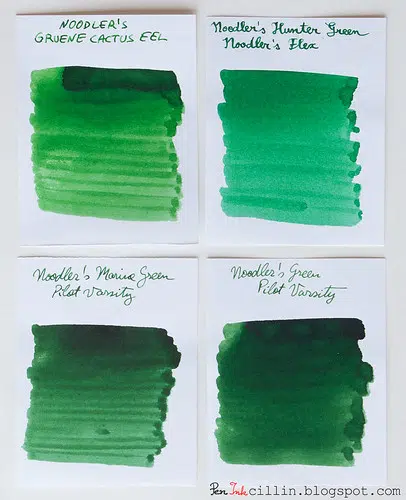 NOODLER'S
GRUENE CACTUS EEL
Noodler's Hunter Green
Noodler's Flex
Noodler's Marine Green
Pilot Varsity
Noodler's Green
Pilot Varsity
Pen Inkcillin.blogspot.com